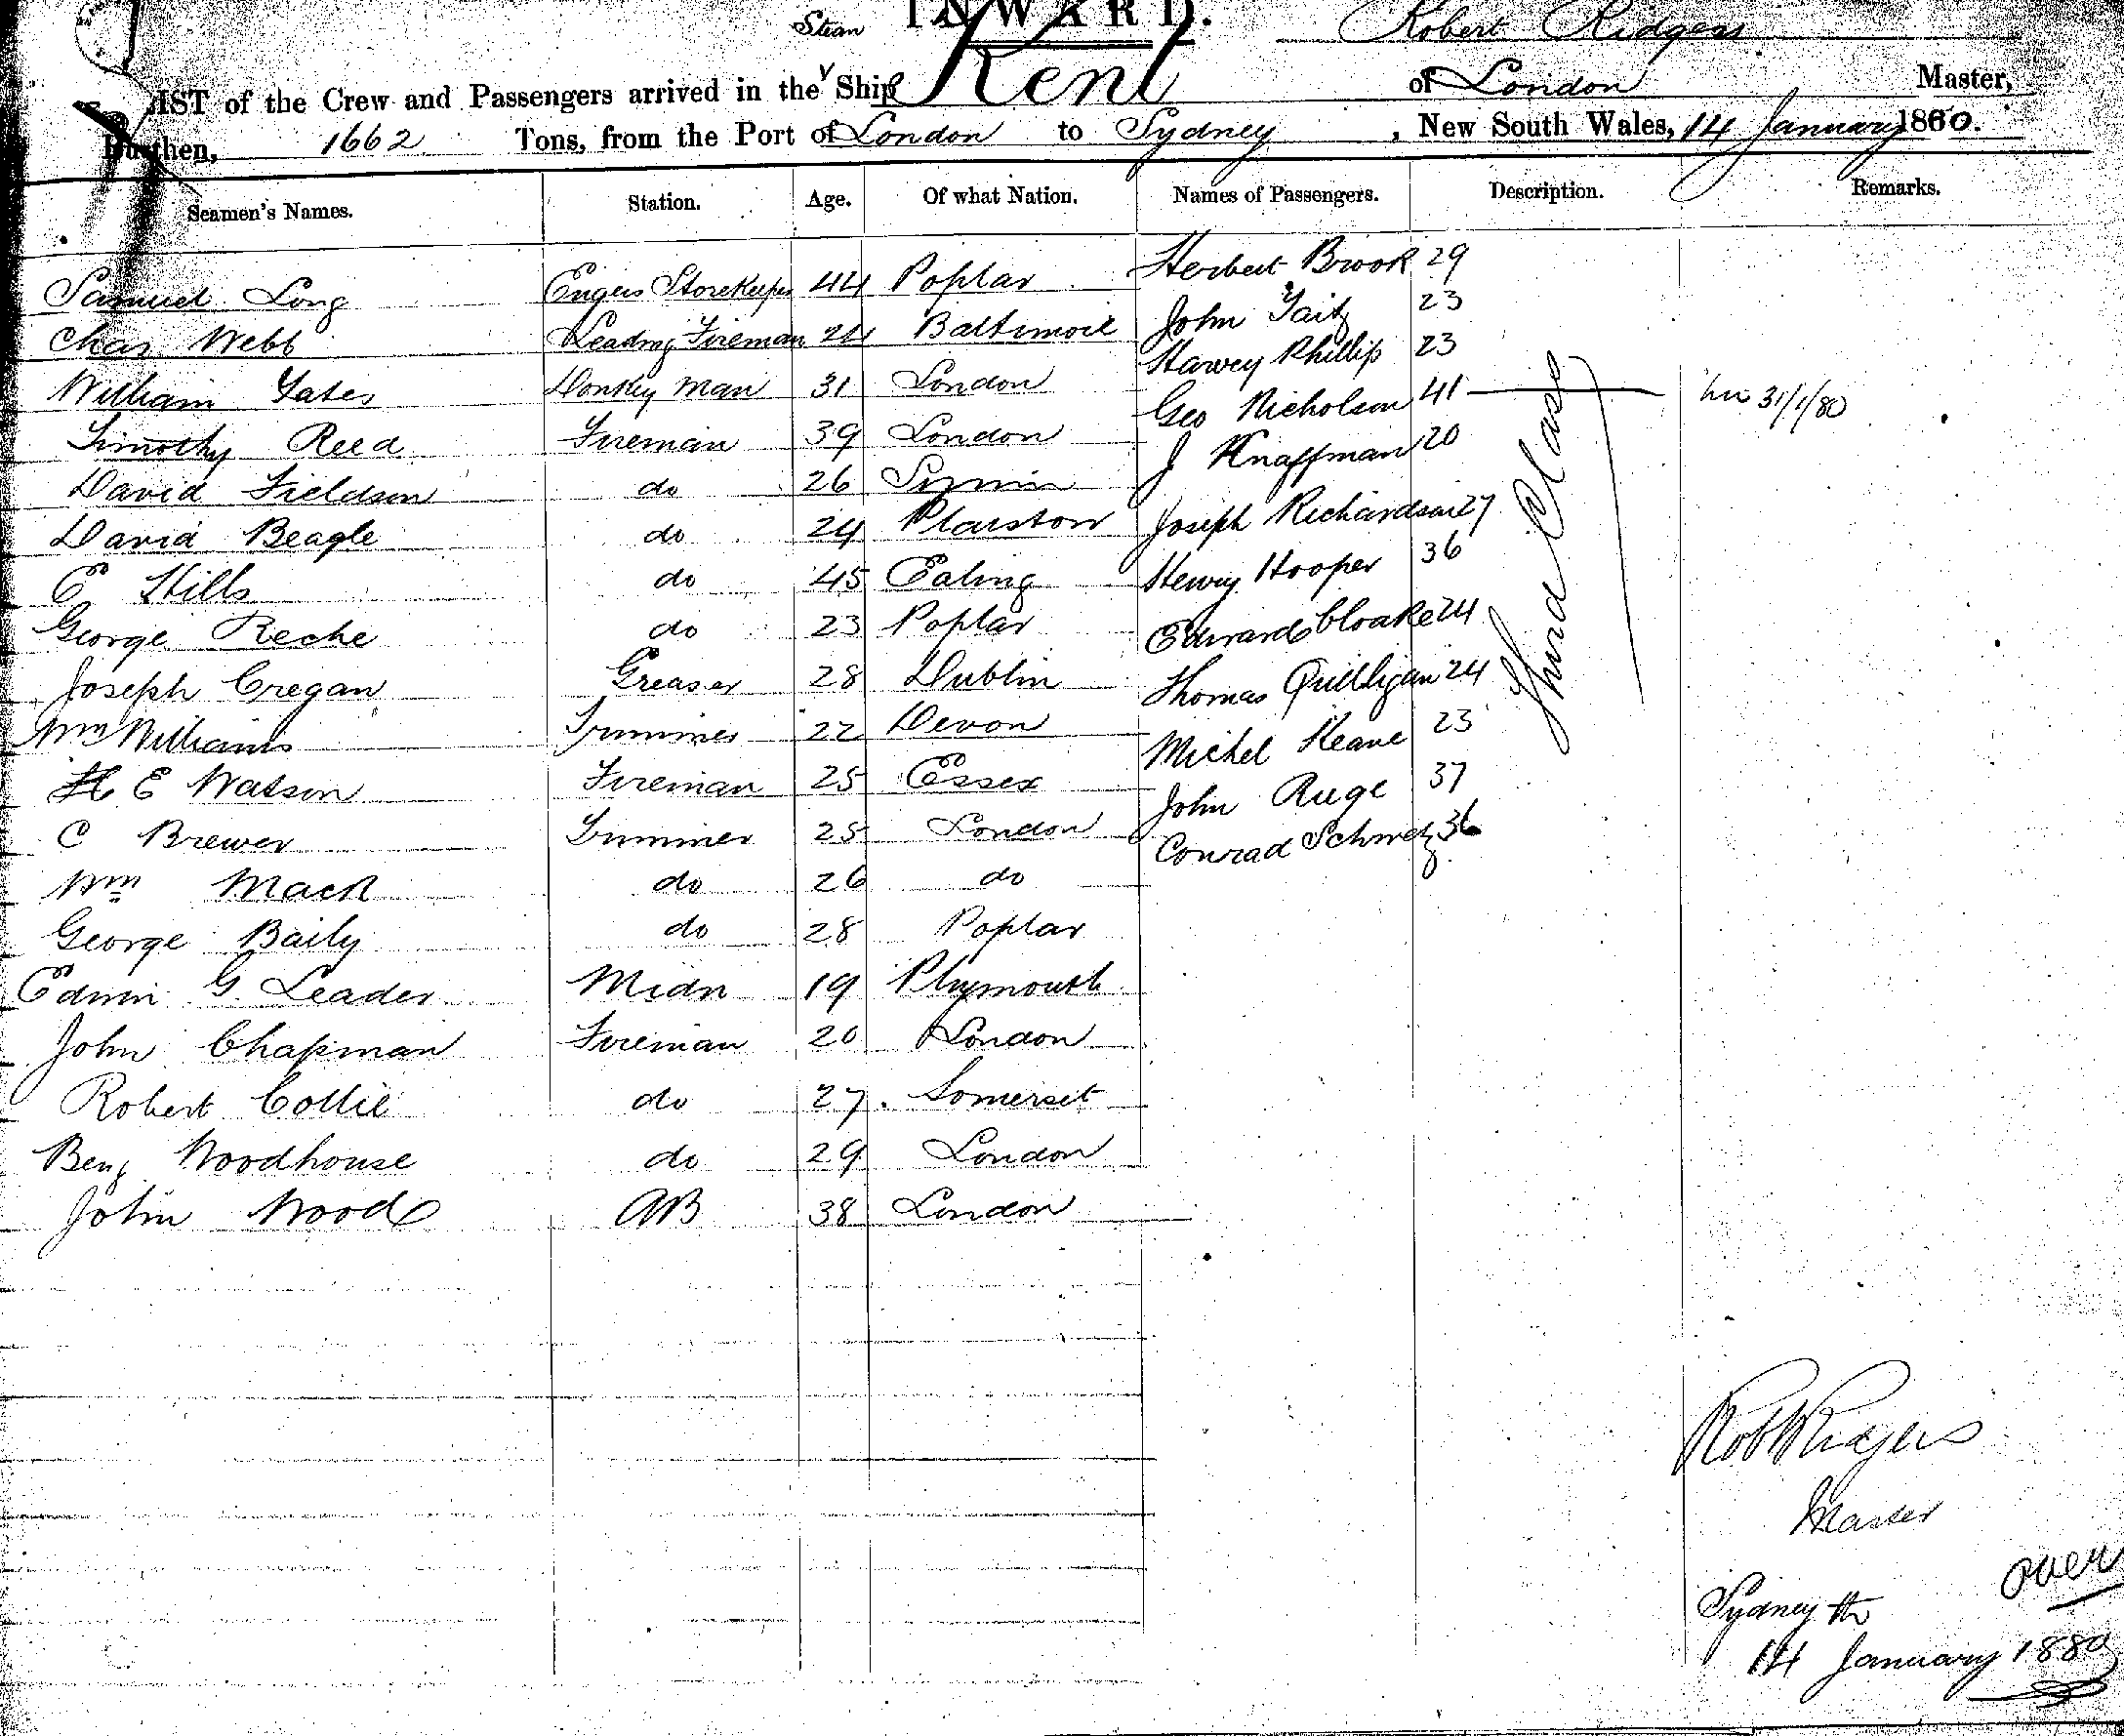 INWARD.
Steam Robert Ridgers
LIST of the Crew and Passengers arrived in the Ship Kent of London Master,
Burthen, 1662 Tons, from the Port of London to Sydney, New South Wales, 14 January 1880.
Seamen's Names. Station. Age. Of what Nation. Names of Passengers. Description. Remarks.
Samuel Long Engers Storekeeper 44 Poplar Herbert Brook 29
Chas Webb Leading Fireman 24 Baltimore John 23
William Yates Donkey Man 31 London Harvey Phillip 23
Timothy Reed Fireman 39 London Geo Nicholson 41 31/1/80
David Fieldson do 26 J Knaffman 20
David Beagle do 24 Plaistow Joseph Richardson 27
E Hills do 45 Ealing Henry Hooper 36
George do 23 Poplar Edward Cloake 24
Joseph Cregan Greaser 28 Dublin Thomas Quilligan 24
Wm Williams Trimmer 22 Devon Michel Keane 23
H E Watson Fireman 25 Essex John Ruge 37
C Brewer Trimmer 25 London Conrad Schmetz 36
Wm Mack do 26 do
George Baily do 28 Poplar
Edwin G. Leader Midn 19 Plymouth
John Chapman Fireman 20 London
Robert Collie do 27. Somerset
Benj Woodhouse do 29 London
John Wood AB 38 London
Third Class
Robt Ridgers
Master
over
Sydney the
14 January 1880